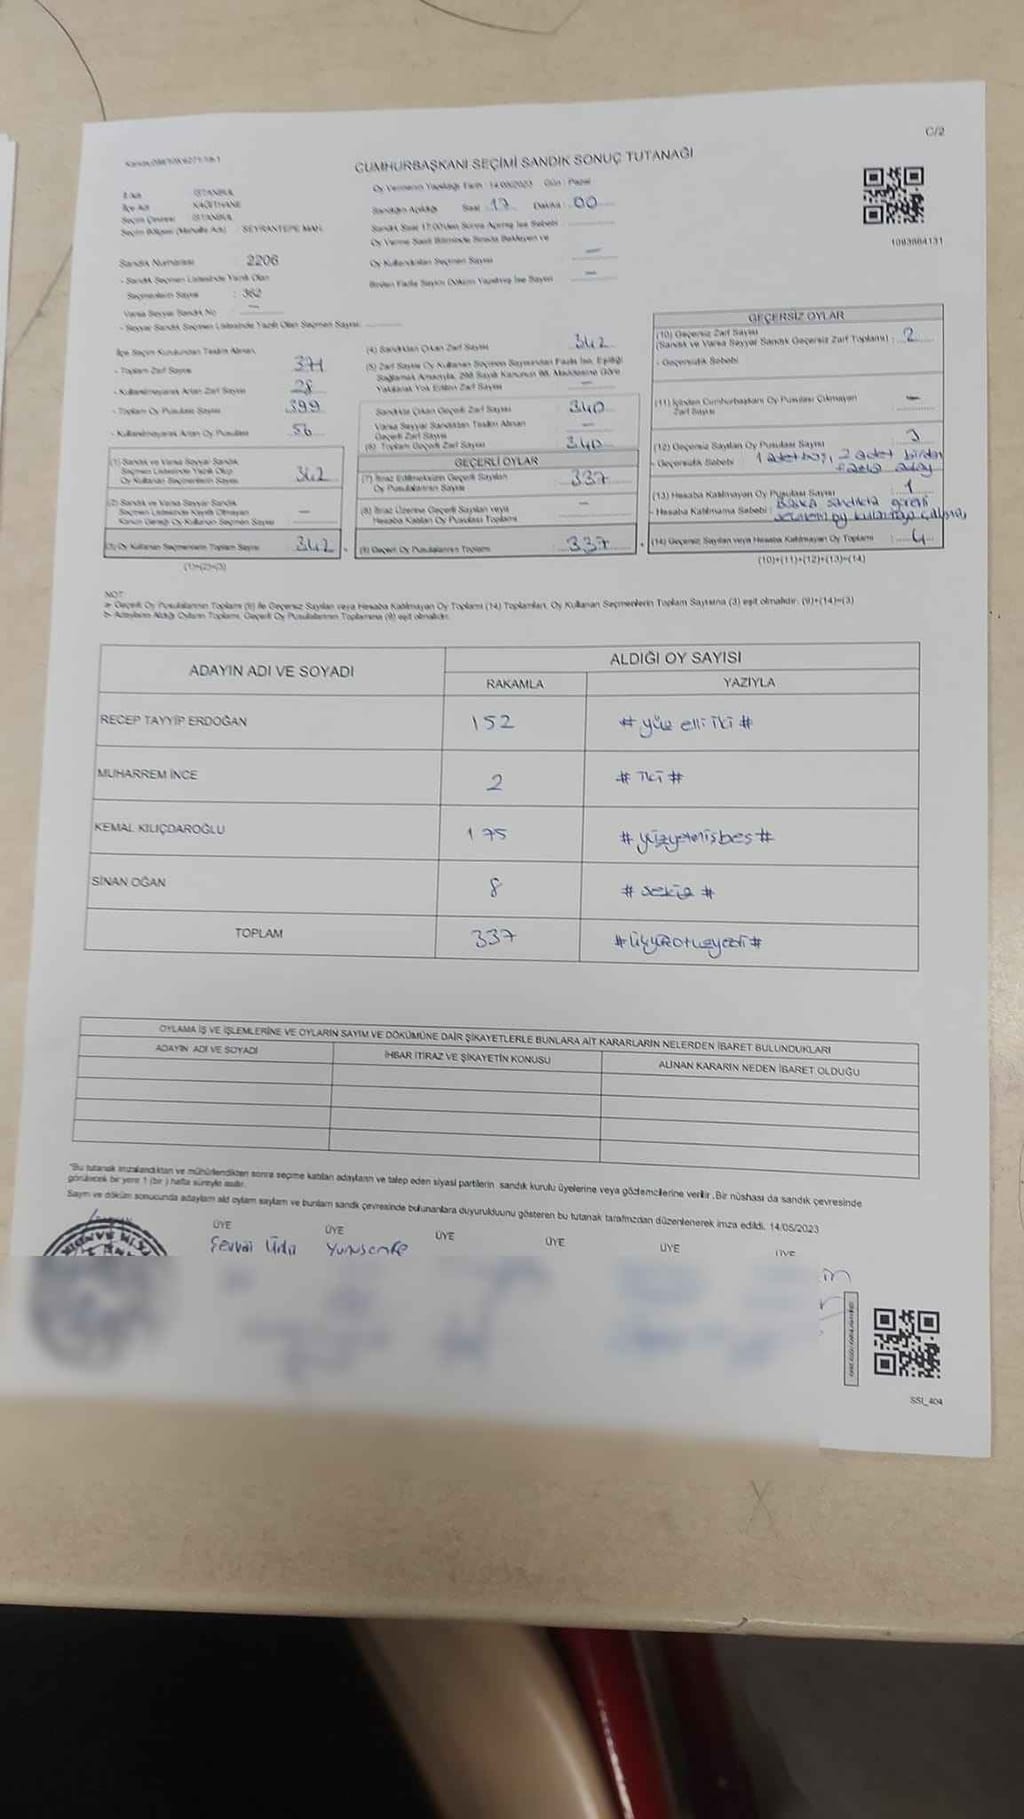 C/2
CUMHURBAŞKANI SEÇİMİ SANDIK SONUÇ TUTANAĞI
İl Adı İSTANBUL
İlçe Adı KAĞITHANE
Seçim Çevresi İSTANBUL
Seçim Bölgesi (Mahalle Adı) SEYRANTEPE MAH.
Sandık Numarası 2206
- Sandık Seçmen Listesinde Yazılı Olan
Seçmenlerin Sayısı : 362
Varsa Seyyar Sandık No —
- Seyyar Sandık Seçmen Listesinde Yazılı Olan Seçmen Sayısı
Oy Vermenin Yapıldığı Tarih : 14/05/2023 Gün : Pazar
Sandığın Açıldığı Saat 17 Dakika 00
Sandık Saat 17:00'den Sonra Açılmış İse Sebebi
Oy Verme Saati Bitiminde Sırada Bekleyen ve
Oy Kullandırılan Seçmen Sayısı —
Birden Fazla Sayım Döküm Yapılmış İse Sayısı —
1093884131
İlçe Seçim Kurulundan Teslim Alınan,
- Toplam Zarf Sayısı 371
- Kullanılmayarak Artan Zarf Sayısı 28
- Toplam Oy Pusulası Sayısı 399
- Kullanılmayarak Artan Oy Pusulası 56
(1) Sandık ve Varsa Seyyar Sandık
Seçmen Listesinde Yazılı Olup
Oy Kullanan Seçmenlerin Sayısı 342
(2) Sandık ve Varsa Seyyar Sandık
Seçmen Listesinde Kayıtlı Olmayan
Kanun Gereği Oy Kullanan Seçmen Sayısı —
(3) Oy Kullanan Seçmenlerin Toplam Sayısı 342
(1)+(2)=(3)
(4) Sandıktan Çıkan Zarf Sayısı 342
(5) Zarf Sayısı Oy Kullanan Seçmen Sayısından Fazla İse, Eşitliği
Sağlamak Amacıyla, 298 Sayılı Kanunun 98. Maddesine Göre
Yakılarak Yok Edilen Zarf Sayısı —
Sandıkta Çıkan Geçerli Zarf Sayısı 340
Varsa Seyyar Sandıktan Teslim Alınan
Geçerli Zarf Sayısı —
(6) Toplam Geçerli Zarf Sayısı 340
GEÇERLİ OYLAR
(7) İtiraz Edilmeksizin Geçerli Sayılan
Oy Pusulalarının Sayısı 337
(8) İtiraz Üzerine Geçerli Sayılan veya
Hesaba Katılan Oy Pusulası Toplamı —
(9) Geçerli Oy Pusulalarının Toplamı 337
GEÇERSİZ OYLAR
(10) Geçersiz Zarf Sayısı
(Sandık ve Varsa Seyyar Sandık Geçersiz Zarf Toplamı) : 2
- Geçersizlik Sebebi
(11) İçinden Cumhurbaşkanı Oy Pusulası Çıkmayan
Zarf Sayısı —
(12) Geçersiz Sayılan Oy Pusulası Sayısı 3
- Geçersizlik Sebebi 1 adet boş, 2 adet birden
fazla aday
(13) Hesaba Katılmayan Oy Pusulası Sayısı 1
- Hesaba Katılmama Sebebi : Başka sandıkta görevli
(14) Geçersiz Sayılan veya Hesaba Katılmayan Oy Toplamı : 4
(10)+(11)+(12)+(13)=(14)
NOT:
a- Geçerli Oy Pusulalarının Toplamı (9) ile Geçersiz Sayılan veya Hesaba Katılmayan Oy Toplamı (14) Toplamları, Oy Kullanan Seçmenlerin Toplam Sayısına (3) eşit olmalıdır. (9)+(14)=(3)
b- Adayların Aldığı Oyların Toplamı, Geçerli Oy Pusulalarının Toplamına (9) eşit olmalıdır.
ADAYIN ADI VE SOYADI ALDIĞI OY SAYISI
RAKAMLA YAZIYLA
RECEP TAYYİP ERDOĞAN 152 # yüz elli iki #
MUHARREM İNCE 2 # iki #
KEMAL KILIÇDAROĞLU 175 # yüzyetmişbeş #
SİNAN OĞAN 8 # sekiz #
TOPLAM 337 # üçyüzotuzyedi #
OYLAMA İŞ VE İŞLEMLERİNE VE OYLARIN SAYIM VE DÖKÜMÜNE DAİR ŞİKAYETLERLE BUNLARA AİT KARARLARIN NELERDEN İBARET BULUNDUKLARI
ADAYIN ADI VE SOYADI İHBAR İTİRAZ VE ŞİKAYETİN KONUSU ALINAN KARARIN NEDEN İBARET OLDUĞU
"Bu tutanak imzalandıktan ve mühürlendikten sonra seçime katılan adayların ve talep eden siyasi partilerin sandık kurulu üyelerine veya gözlemcilerine verilir. Bir nüshası da sandık çevresinde
görülecek bir yere 1 (bir) hafta süreyle asılır.
Sayım ve döküm sonucunda adayların aldı oyların sayıları ve bunların sandık çevresinde bulunanlara duyurulduunu gösteren bu tutanak tarafımızdan düzenlenerek imza edildi. 14/05/2023
ÜYE ÜYE ÜYE ÜYE ÜYE ÜYE
Yunusemre
SSI_404